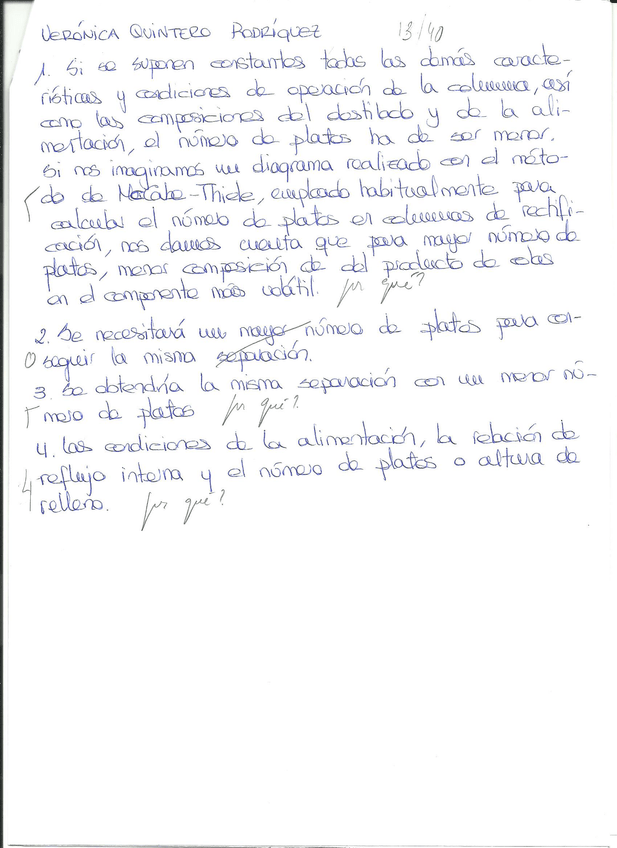 VERÓNICA QUINTERO RODRÍGUEZ 13/40
1. Si se suponen constantes todas las demás caracte-
rísticas y condiciones de operación de la columna, así
como las composiciones del destilado y de la ali-
mentación, el número de platos ha de ser menor.
Si nos imaginamos un diagrama realizado con el méto-
do de McCabe-Thiele, empleado habitualmente para
calcular el número de platos en columnas de rectifi-
cación, nos damos cuenta que para mayor número de
platos, menor composición de del producto de colas
en el componente más volátil. por qué?
2. Se necesitará un mayor número de platos para con-
0 seguir la misma separación.
3. Se obtendría la misma separación con un menor nú-
mero de platos por qué?
4. Las condiciones de la alimentación, la relación de
4 reflujo interna y el número de platos o altura de
relleno. por qué?